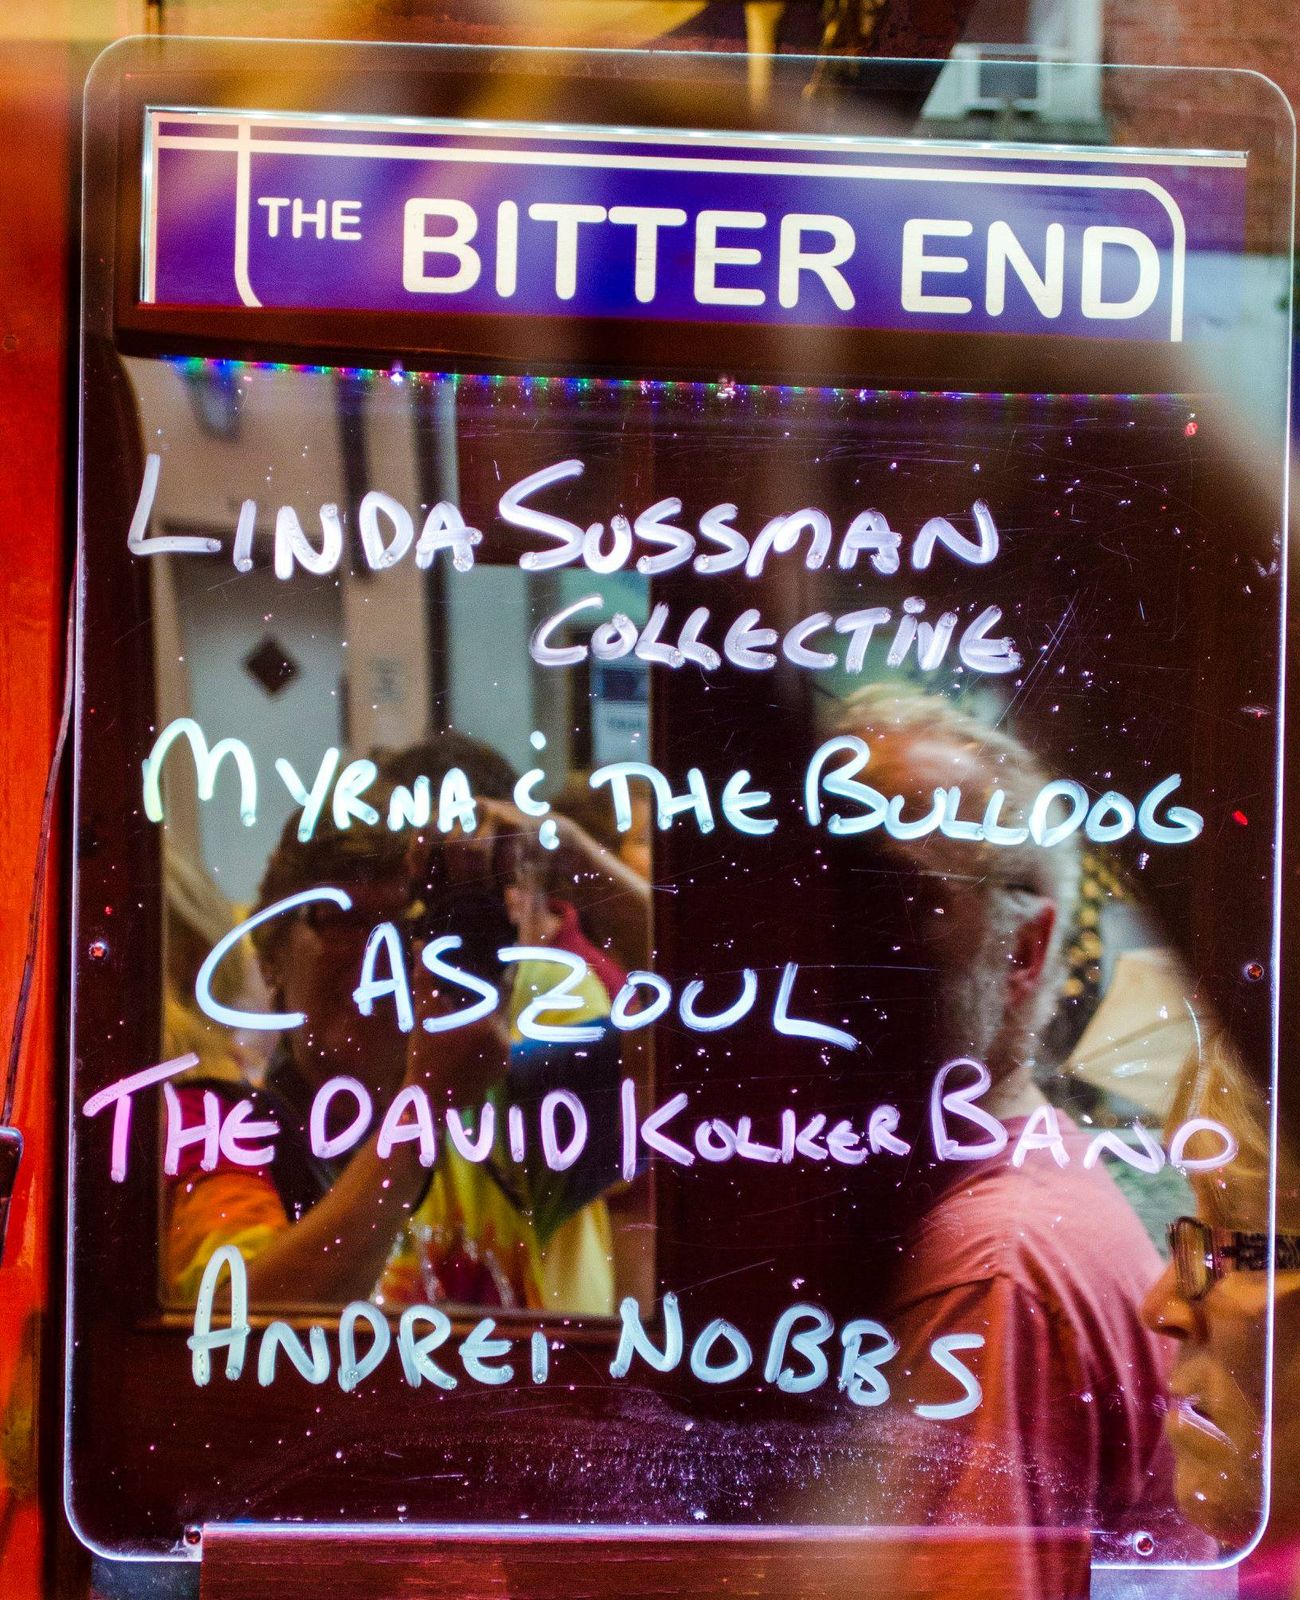 THE BITTER END
LINDA SUSSMAN
COLLECTIVE
MYRNA & THE BULLDOG
CASZOUL
THE DAVID KOLKER BAND
ANDREI NOBBS